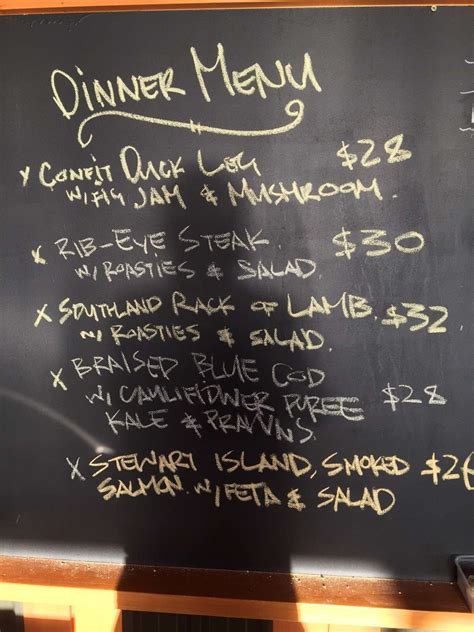 DINNER MENU
x CONFIT DUCK LEG $28
W/FIG JAM & MUSHROOM.
x RIB-EYE STEAK. $30
W/ ROASTIES & SALAD.
x SOUTHLAND RACK OF LAMB. $32
W/ ROASTIES & SALAD.
x BRAISED BLUE COD
W/ CAULIFLOWER PUREE $28
KALE & PRAWNS.
x STEWART ISLAND, SMOKED $2
SALMON. W/FETA & SALAD